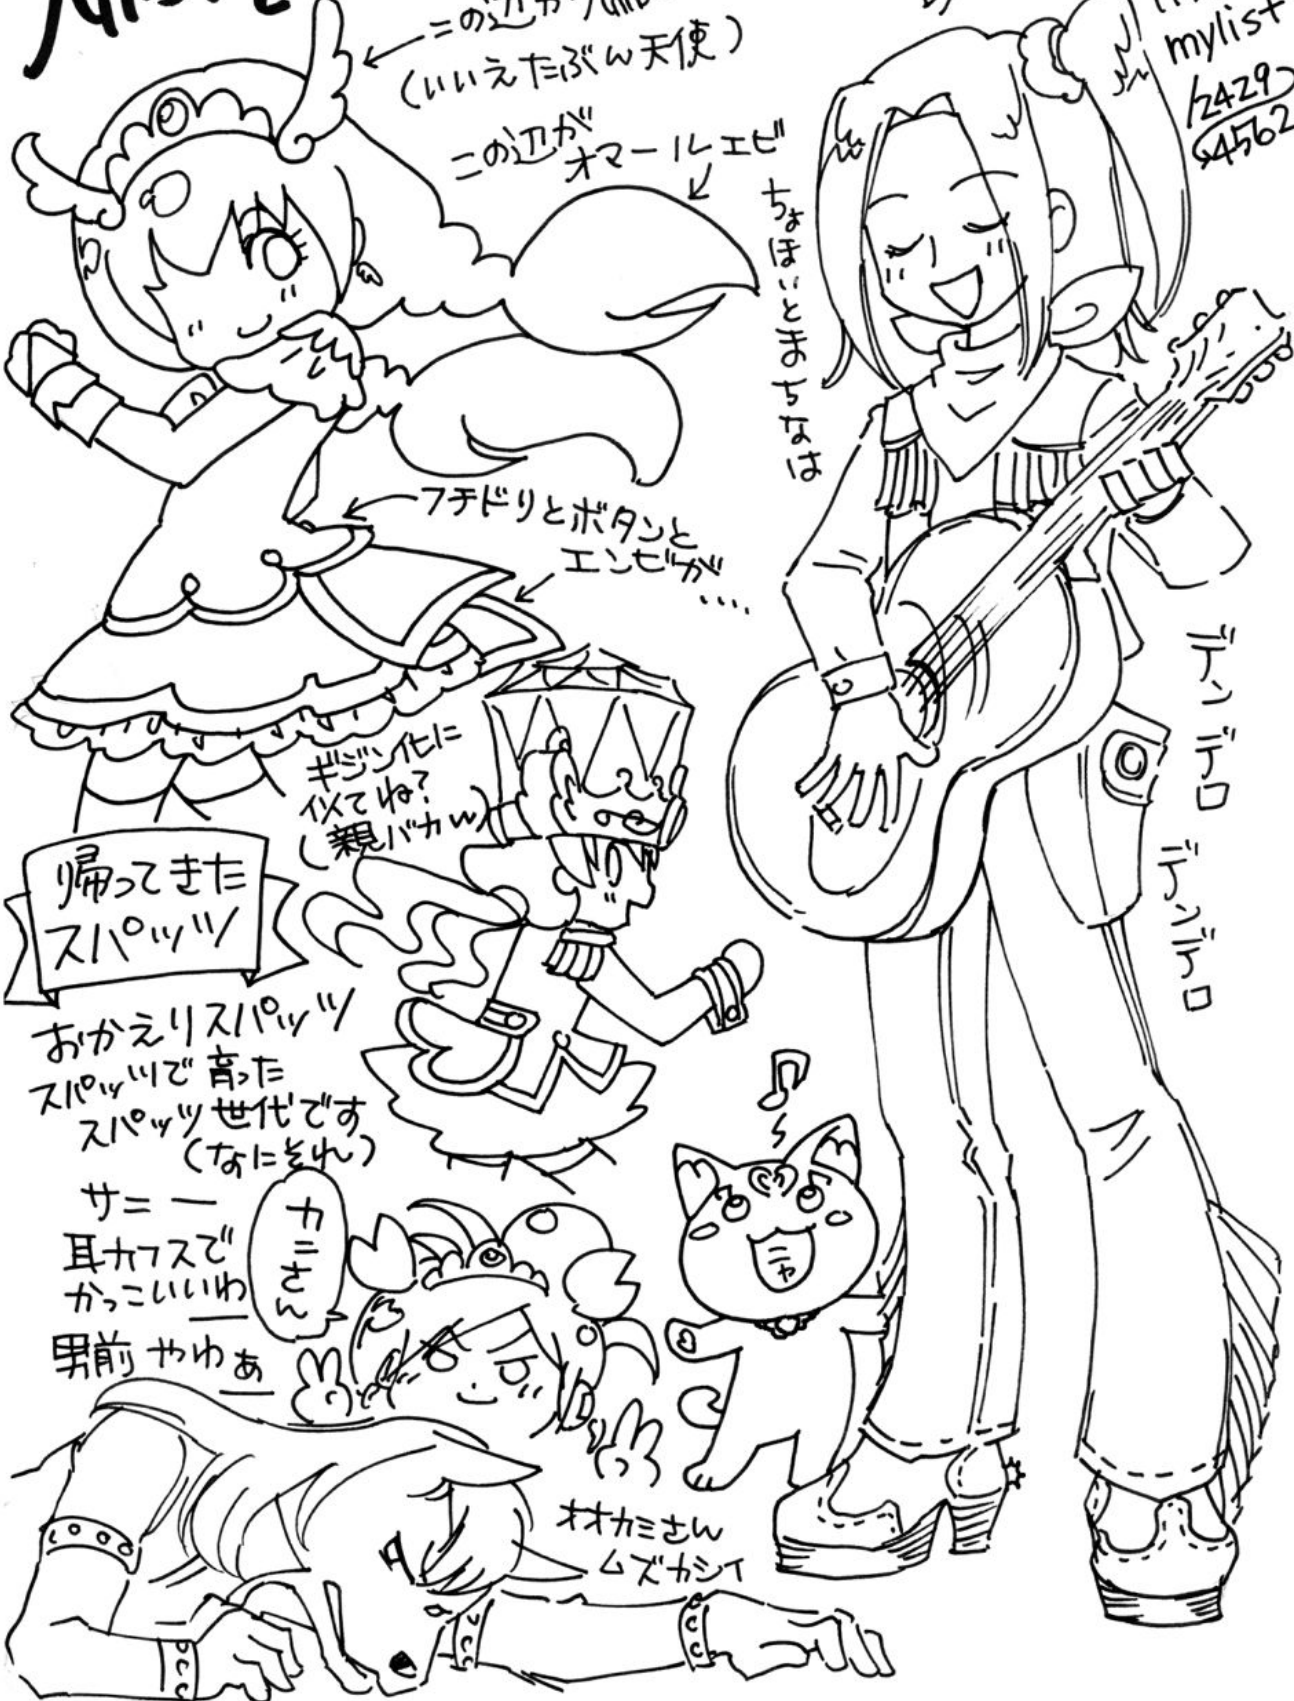 mylist
/2429
4562
この辺が
(いいえたぶん天使)
この辺が
オマールエビ
ちょほいとまちなは
フチドリとボタンと
エンビが
....
デンデロ
デンデロ
ギジン化に
似てね?
(親バカw)
帰ってきた
スパッツ
おかえりスパッツ
スパッツで育った
スパッツ世代です
(なにそれ)
サニー
耳カフスで
かっこいいわ
男前やわぁ
カニさん
ニャ
オオカミさん
ムズカシイ